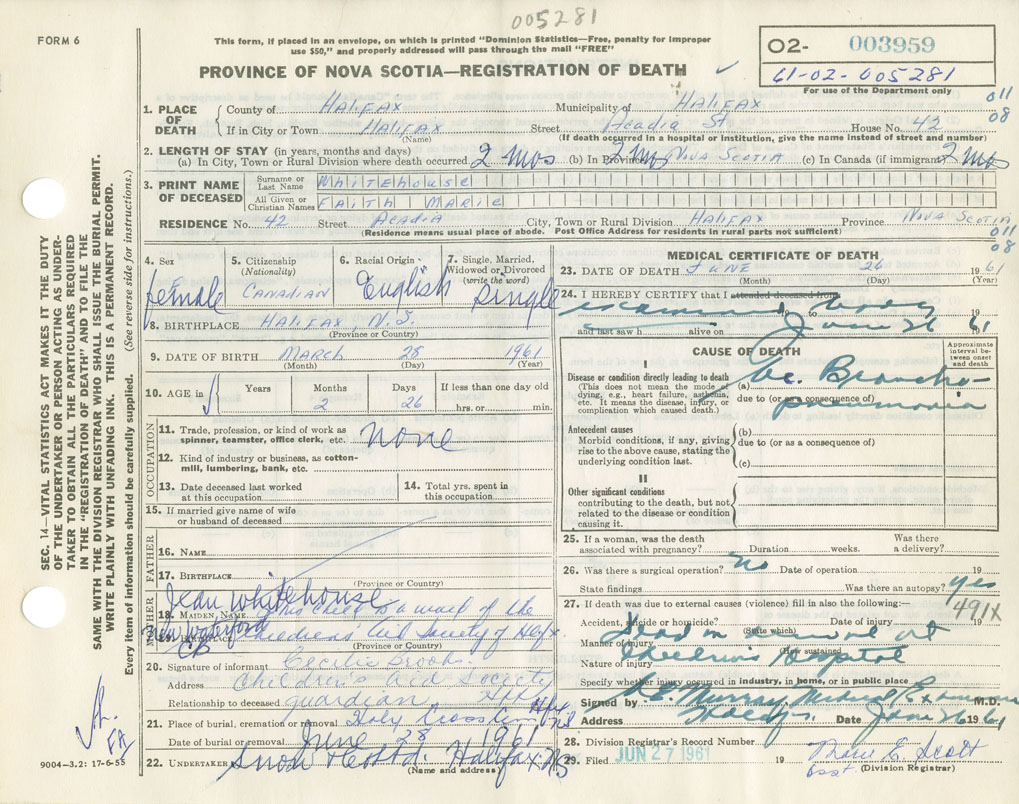 005281
FORM 6
This form, if placed in an envelope, on which is printed "Dominion Statistics—Free, penalty for improper
use $50," and properly addressed will pass through the mail "FREE"
PROVINCE OF NOVA SCOTIA—REGISTRATION OF DEATH ✓
O2- 003959
61-02-005281
For use of the Department only
011
08
1. PLACE OF DEATH County of HALIFAX Municipality of HALIFAX
If in City or Town HALIFAX Street Acadia St House No. 42
(Name) (If death occurred in a hospital or institution, give the name instead of street and number)
2. LENGTH OF STAY (in years, months and days)
(a) In City, Town or Rural Division where death occurred 2 mos (b) In Province 2 mo Nova Scotia (c) In Canada (if immigrant) 2 Mos
3. PRINT NAME OF DECEASED
Surname or Last Name Whitehouse
All Given or Christian Names FAITH MARIE
RESIDENCE No. 42 Street Acadia City, Town or Rural Division HALIFAX Province NOVA SCOTIA
(Residence means usual place of abode. Post Office Address for residents in rural parts not sufficient)
011
08
4. Sex female
5. Citizenship (Nationality) CANADIAN
6. Racial Origin English
7. Single, Married, Widowed or Divorced (write the word) Single
8. BIRTHPLACE HALIFAX, N.S.
(Province or Country)
9. DATE OF BIRTH MARCH 28 1961
(Month) (Day) (Year)
10. AGE in Years Months 2 Days 26 If less than one day old hrs. or min.
OCCUPATION
11. Trade, profession, or kind of work as spinner, teamster, office clerk, etc. none
12. Kind of industry or business, as cotton-mill, lumbering, bank, etc.
13. Date deceased last worked at this occupation
14. Total yrs. spent in this occupation
15. If married give name of wife or husband of deceased
FATHER
16. NAME
17. BIRTHPLACE
(Province or Country)
MOTHER
Jean Whitehouse
18. MAIDEN NAME This child is a ward of the
New Waterford
CB
BIRTHPLACE Childrens Aid Society of Hfx
(Province or Country)
20. Signature of informant Cecilie Brooks
Address Children's Aid Society
Relationship to deceased guardian Hfx
21. Place of burial, cremation or removal Holy Cross Cem Hfx
Date of burial or removal June 28 1961
22. UNDERTAKER Snow & Co Ltd. Halifax N.S
(Name and address)
MEDICAL CERTIFICATE OF DEATH
23. DATE OF DEATH JUNE 26 1961
(Month) (Day) (Year)
24. I HEREBY CERTIFY that I attended deceased from
examined to body
and last saw h alive on June 26 61
CAUSE OF DEATH
Approximate interval between onset and death
I
Disease or condition directly leading to death (a) Ac. Broncho-
(This does not mean the mode of dying, e.g., heart failure, asthenia, etc. It means the disease, injury, or complication which caused death.)
due to (or as a consequence of) pneumonia
Antecedent causes (b)
Morbid conditions, if any, giving rise to the above cause, stating the underlying condition last.
due to (or as a consequence of)
(c)
II
Other significant conditions
contributing to the death, but not related to the disease or condition causing it.
25. If a woman, was the death associated with pregnancy? Duration weeks. Was there a delivery?
26. Was there a surgical operation? no Date of operation 19
State findings Was there an autopsy? yes
27. If death was due to external causes (violence) fill in also the following:— 491X
Accident, suicide or homicide? Date of injury 19
(State which)
Dead on arrival at
Manner of injury
(How sustained)
Children's Hospital
Nature of injury
Specify whether injury occurred in industry, in home, or in public place
Signed by Murray Medical Examiner M.D.
Address Halifax Date June 26 1961
28. Division Registrar's Record Number
29. Filed JUN 27 1961 19 E. Scott
asst (Division Registrar)
SEC. 14—VITAL STATISTICS ACT MAKES IT THE DUTY
OF THE UNDERTAKER OR PERSON ACTING AS UNDER-
TAKER TO OBTAIN ALL THE PARTICULARS REQUIRED
IN THE "REGISTRATION OF DEATH" AND TO FILE THE
SAME WITH THE DIVISION REGISTRAR WHO SHALL ISSUE THE BURIAL PERMIT.
WRITE PLAINLY WITH UNFADING INK. THIS IS A PERMANENT RECORD.
Every item of information should be carefully supplied. (See reverse side for instructions.)
9004—3.2: 17-6-55